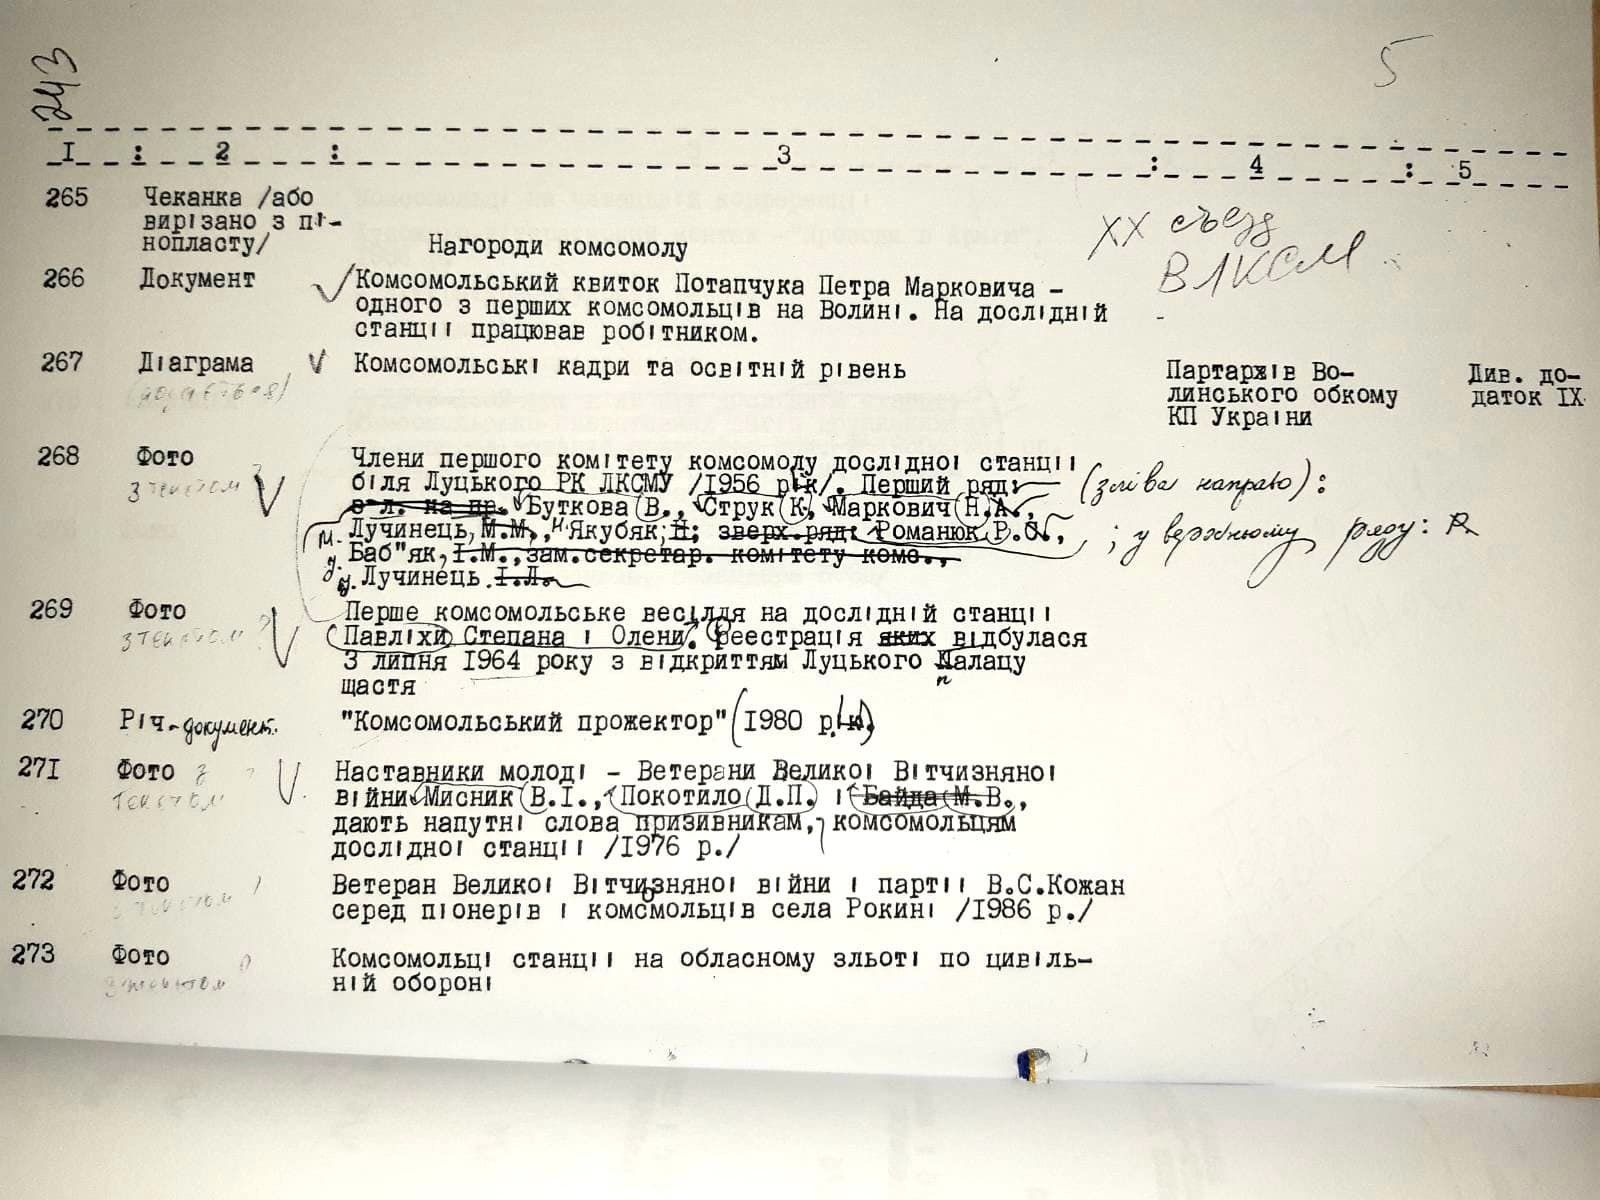 243
5
I : 2 : 3 : 4 : 5
265 Чеканка /або
вирізано з пі-
нопласту/ Нагороди комсомолу
ХХ съезд
ВЛКСМ
266 Документ Комсомольський квиток Потапчука Петра Марковича -
одного з перших комсомольців на Волині. На дослідній
станції працював робітником.
267 Діаграма Комсомольські кадри та освітній рівень Партархів Во- Див. до-
линського обкому даток IX
КП України
268 Фото Члени першого комітету комсомолу дослідної станції
з текстом біля Луцького РК ЛКСМУ /1956 рік/. Перший ряд: (зліва направо):
з л. на пр. Буткова В., Струк К., Маркович Н.А.,
М. Лучинець, М.М., Н. Якубяк, Н; зверх.ряд: Романюк Р.О., ; у верхньому ряду: Р
Баб"як, І.М., зам.секретар. комітету комс.,
Лучинець І.Л.
269 Фото Перше комсомольське весілля на дослідній станції
з текстом ? (Павліхи Степана і Олени. Реестрація яких відбулася
3 липня 1964 року з відкриттям Луцького Палацу
п
щастя
270 Річ-документ. "Комсомольський прожектор" (1980 рік)
271 Фото з Наставники молоді - Ветерани Великої Вітчизняної
текстом війни Мисник В.І., Покотило Д.П. і Байда М.В.,
дають напутні слова призивникам, комсомольцям
дослідної станції /1976 р./
272 Фото Ветеран Великої Вітчизняної війни і партії В.С.Кожан
з текстом серед піонерів і комсомольців села Рокині /1986 р./
273 Фото Комсомольці станції на обласному зльоті по цивіль-
з текстом ній обороні